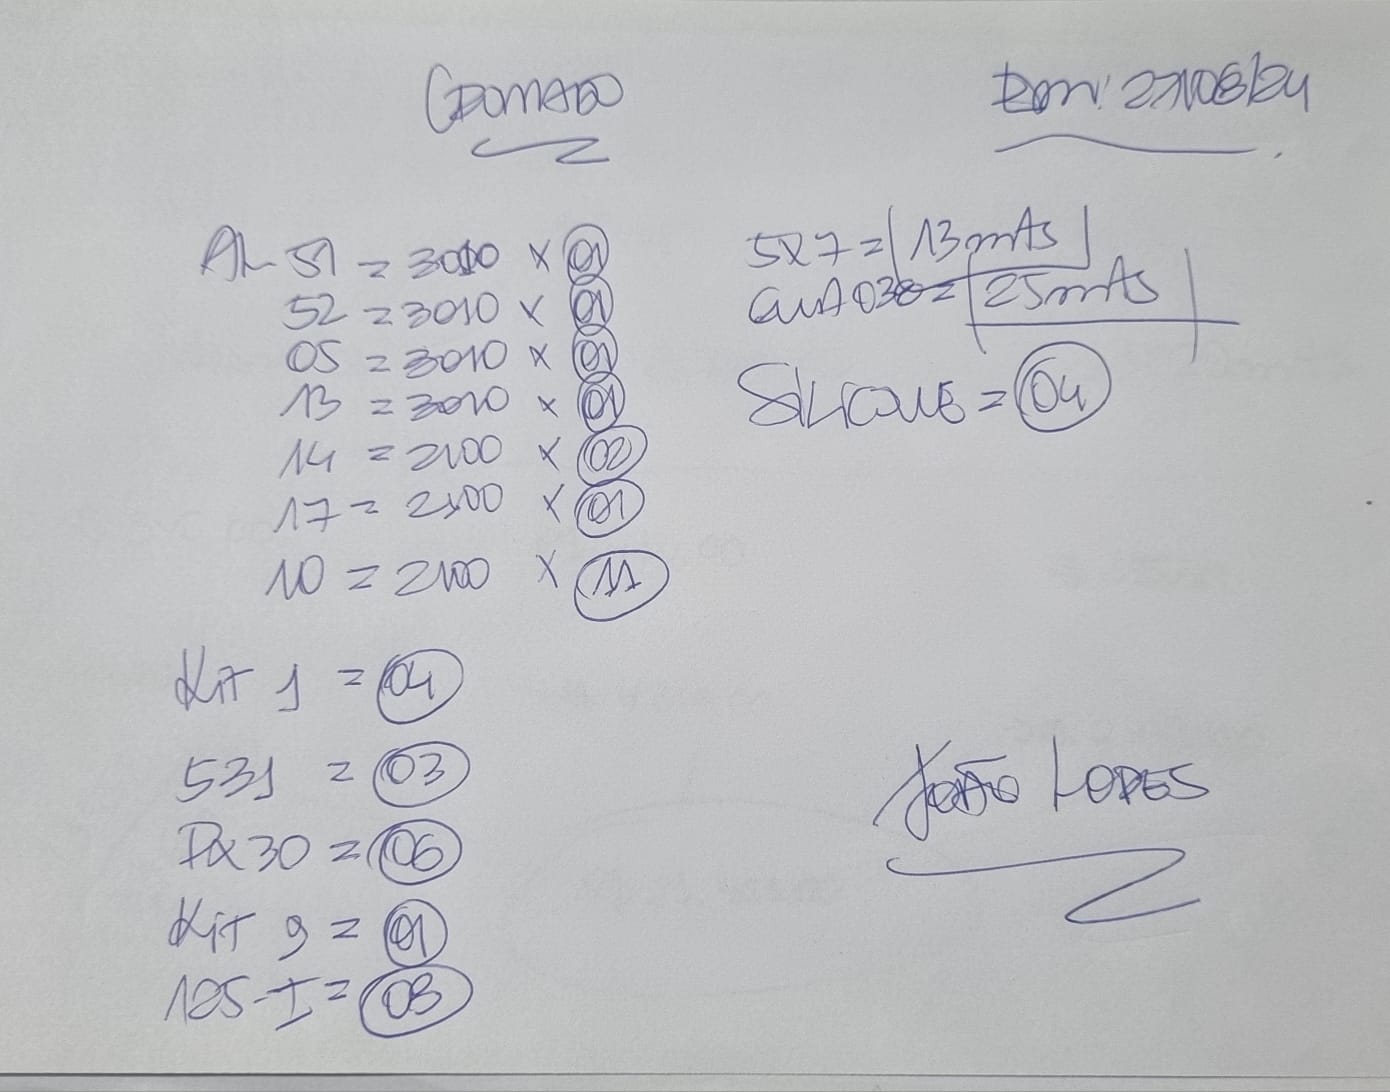 CROMADO
27/08/24
AL 51 = 3010 x 01
52 = 3010 x 01
05 = 3010 x 01
13 = 3010 x 01
14 = 2100 x 02
17 = 2100 x 01
10 = 2100 x 11
5x7 = 13mts
036 = 25mts
SILICONE = 04
Kit 1 = 04
531 = 03
30 = 06
Kit 9 = 01
125-I = 08
JOÃO LOPES